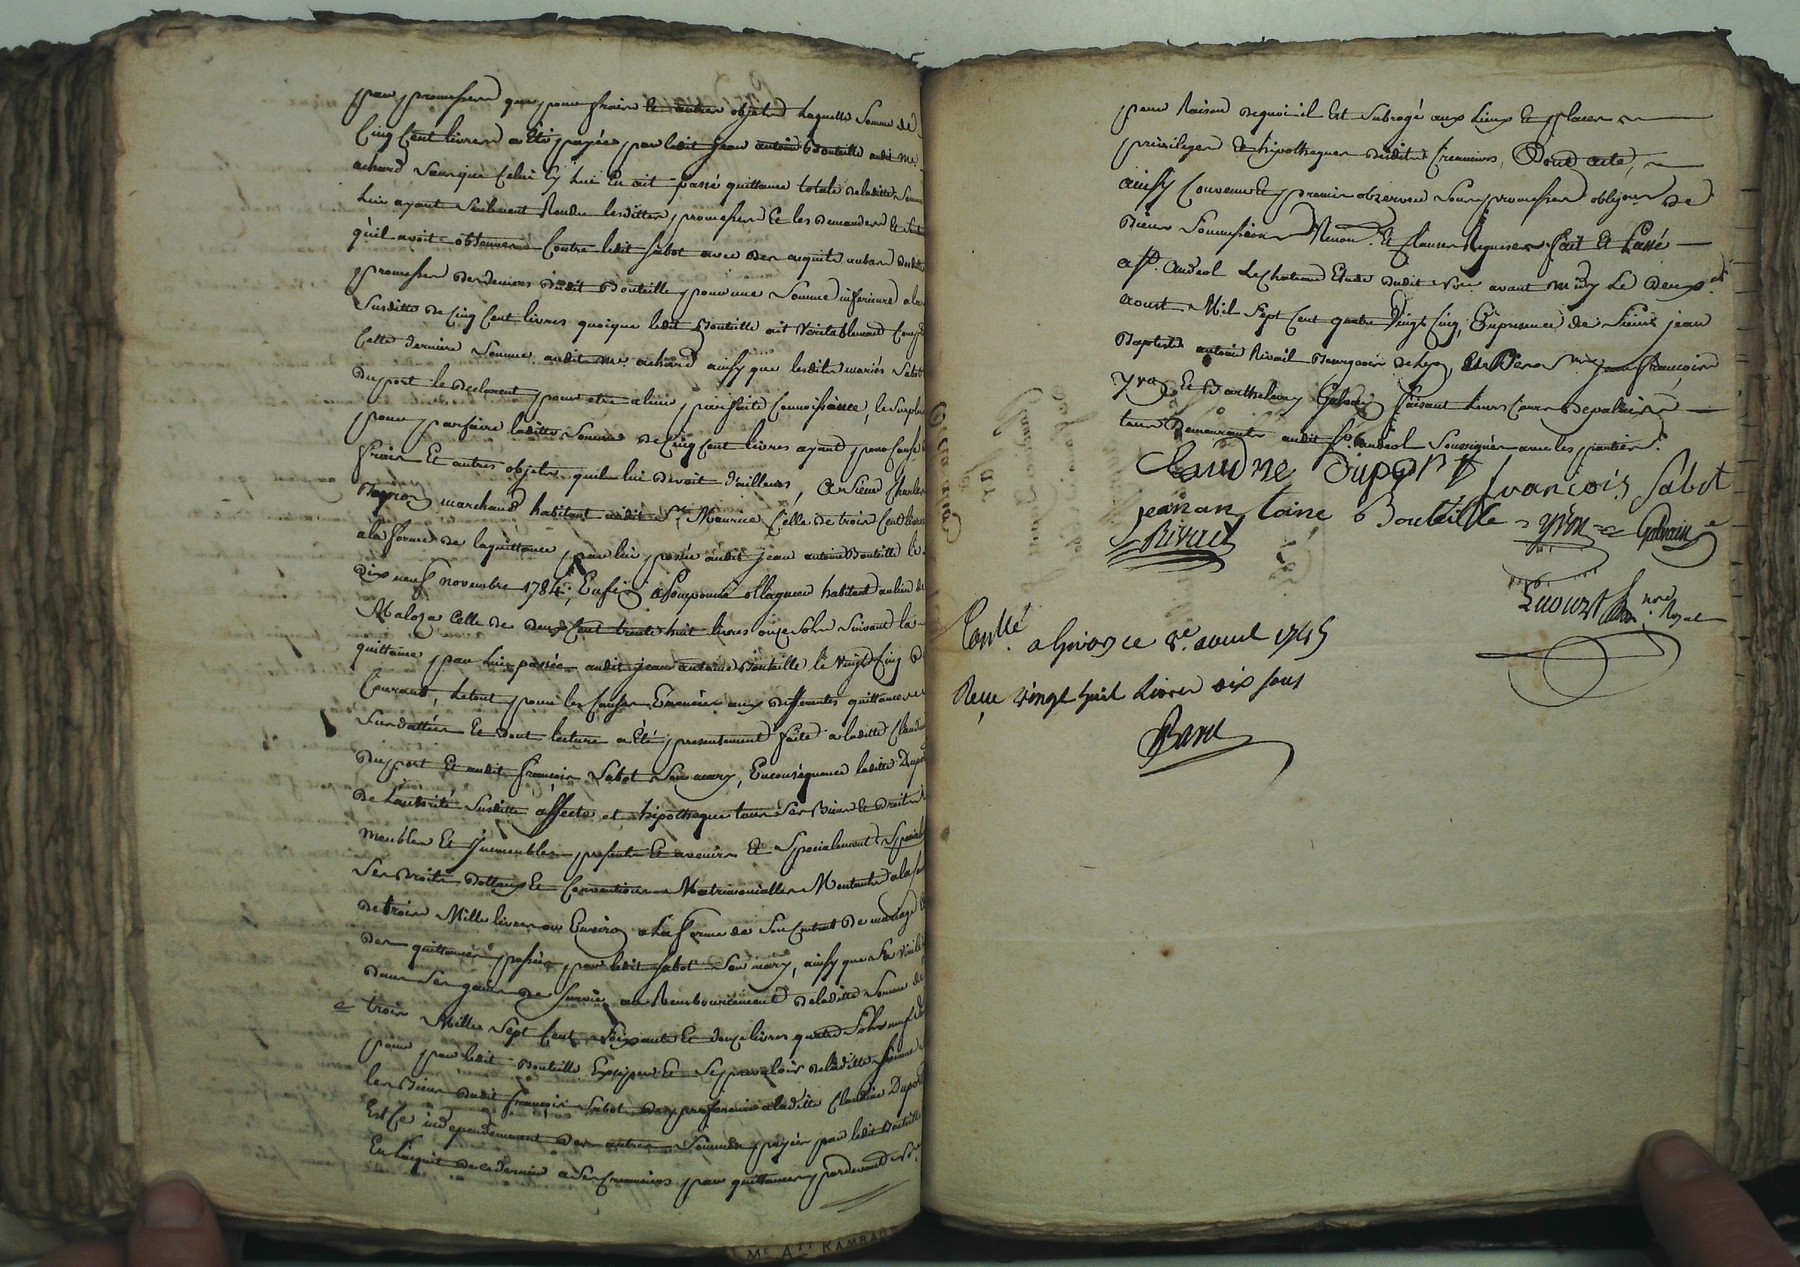 par promesses que pour frais et autres objets laquelle somme de
Cinq Cent livres a Eté payée par ledit jean antoine Bouteille audit me
achard sans que Celui cy lui En ait passé quittance totale de laditte somme
lui ayant seulement Rendu lesdittes promesses Et les demandes et
qu'il avoit obtenues Contre ledit Sabot avec des acquits aubas desdittes
promesses des deniers dudit Bouteille pour une somme inferieure ala
Susditte de Cinq Cent livres quoique ledit Bouteille ait veritablement Compté
Cette derniere somme audit me achard ainsy que lesdits mariés Sabot
Duport le declarent pour etre aleur parfaite Connoissance, le surplus
pour parfaire laditte somme de Cinq Cent livres ayant pour Cause
frais Et autres objets quil lui devoit d'ailleurs, a sieur Charles
marchand habitant audit St Maurice Celle de trois Cent livres
ala forme de la quittance par lui passée audit jean antoine Bouteille le
dix neuf novembre 1784; Enfin a Pomponne ollagnier habitant au lieu de
Celle de deux Cent trente huit livres onze sols suivant la
quittance par lui passée audit jean antoine Bouteille le vingt Cinq du
Courant, letout pour les Causes Enoncées aux differentes quittances
Susdattées Et dont lecture a Eté presentement faite a laditte Claudine
Duport Et audit françois Sabot son mary, Enconséquence laditte Duport
de l'autorité susditte affecte et hipotheque tous ses Biens Et droits
meubles Et Immeubles presents Et avenirs Et specialement
ses droits dottaux Et Conventions Matrimonialles Montants ala somme
de trois Mille livres ou Environ ala forme de son Contrat de mariage Et
des quittances passées par ledit Sabot son mary, ainsy que
dans ses gains de survie au Remboursement de laditte somme de
trois Mille sept Cent soixante Et douze livres quatre sols neuf deniers
pour par ledit Bouteille Exciper Et se prevaloir de laditte somme
les Biens dudit françois Sabot de preference a laditte Claudine Duport
Est Ce independemment des autres sommes payées par ledit Bouteille
En l'acquit de ce dernier a ses Creanciers par quittances pardevant nre
pour Raison dequoi il Est subrogé aux lieux Et places
privileges Et hipotheques desdits Creanciers, Dont acte,
ainsy Convenu Et promis observer sous promesses obligons de
Biens soumissions Renon. Et Clauses Requises fait Et Passé
a St. andéol le chateau Etude dudit nre avant midy le deux
aoust Mil sept Cent quatre vingt Cinq, En presence de sieur jean
Baptiste antoine Rivail Bourgeois de Lyon, Et de jean françois
yvrs Et Barthelemy Galvain faisant leurs Cours de palais
tous demeurants audit St. andeol soussignés avec les parties.
Claudine Duport françois Sabot
jean antoine Bouteille yvrs Galvain
Rivail
nre Royal
Conllé a Givors ce 8e. aout 1785
Reçu vingt huit Livres dix sous
Me Att KAMBA